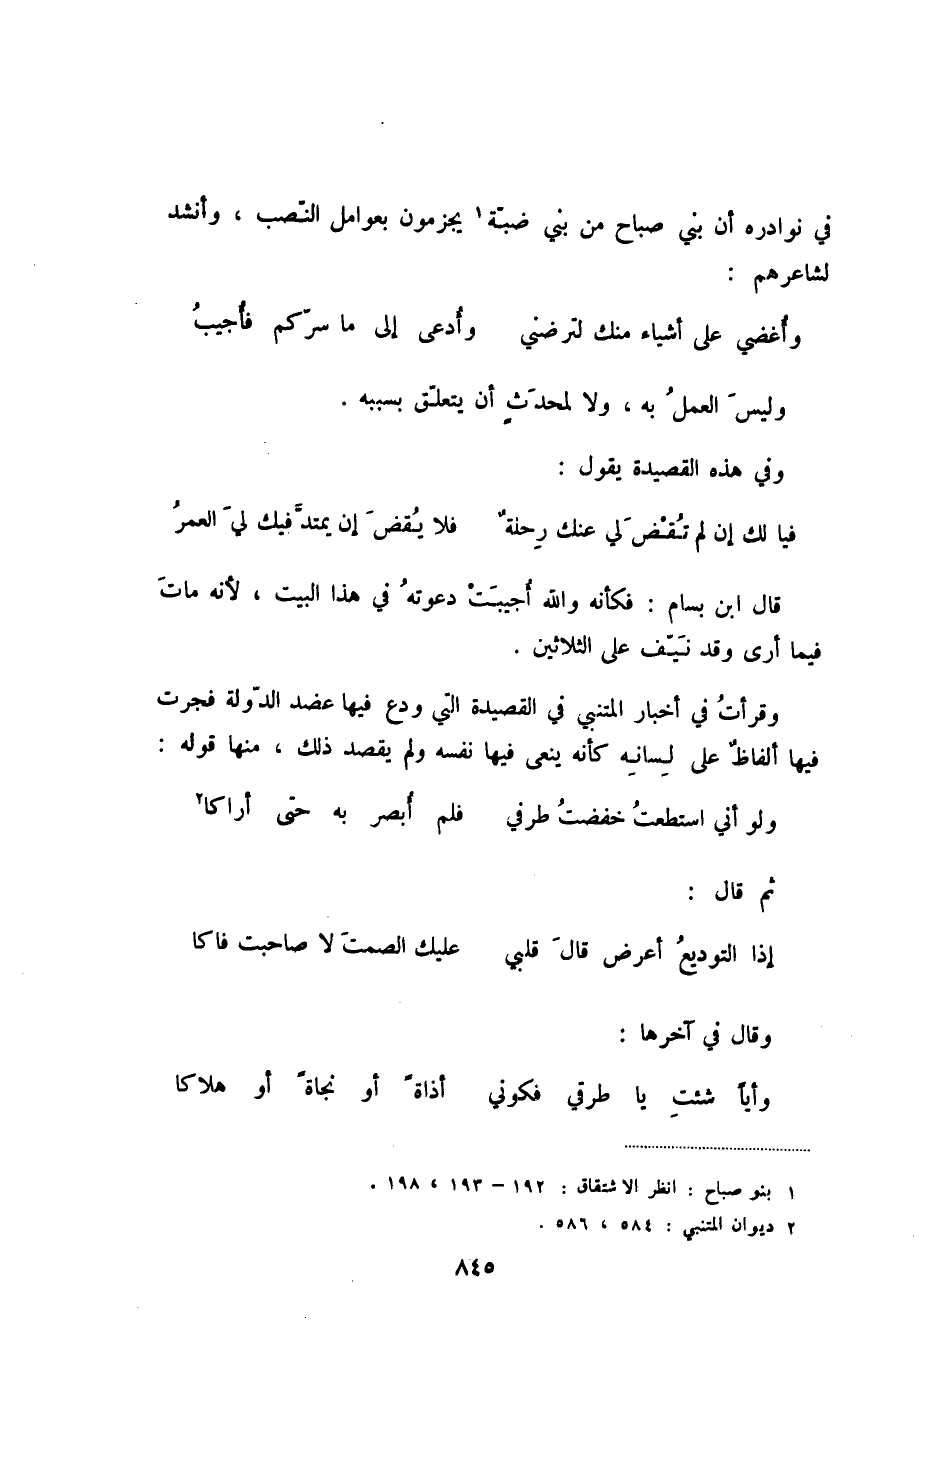 في نوادره أن بني صباح من بني ضبّة١ يجزمون بعوامل النّصب ، وأنشد
لشاعرهم :
وأُغضي على أشياء منك لترضني وأُدعى إلى ما سرّكم فأُجيبُ
وليسَ العملُ به ، ولا لمحدَثٍ أن يتعلّق بسببه .
وفي هذه القصيدة يقول :
فيا لك إن لم تُقْضَ لي عنك رِحلةٌ فلا يُقضَ إن يمتدَّ فيك ليَ العمرُ
قال ابن بسام : فكأنه والله أُجيبَتْ دعوتهُ في هذا البيت ، لأنه ماتَ
فيما أرى وقد نَيّف على الثلاثين .
وقرأتُ في أخبار المتنبي في القصيدة التي ودع فيها عضد الدّولة فجرت
فيها ألفاظٌ على لِسانِه كأنه ينعى فيها نفسه ولم يقصد ذلك ، منها قوله :
ولو أني استطعتُ خفضتُ طرفي فلم أُبصر به حتى أراكا٢
ثم قال :
إذا التوديعُ أعرض قالَ قلبي عليك الصمتَ لا صاحبت فاكا
وقال في آخرها :
وأياً شئتِ يا طرقي فكوني أذاةً أو نجاةً أو هلاكا
١ بنو صباح : انظر الاشتقاق : ١٩٢ – ١٩٣ ، ١٩٨ .
٢ ديوان المتنبي : ٥٨٤ ، ٥٨٦ .
٨٤٥